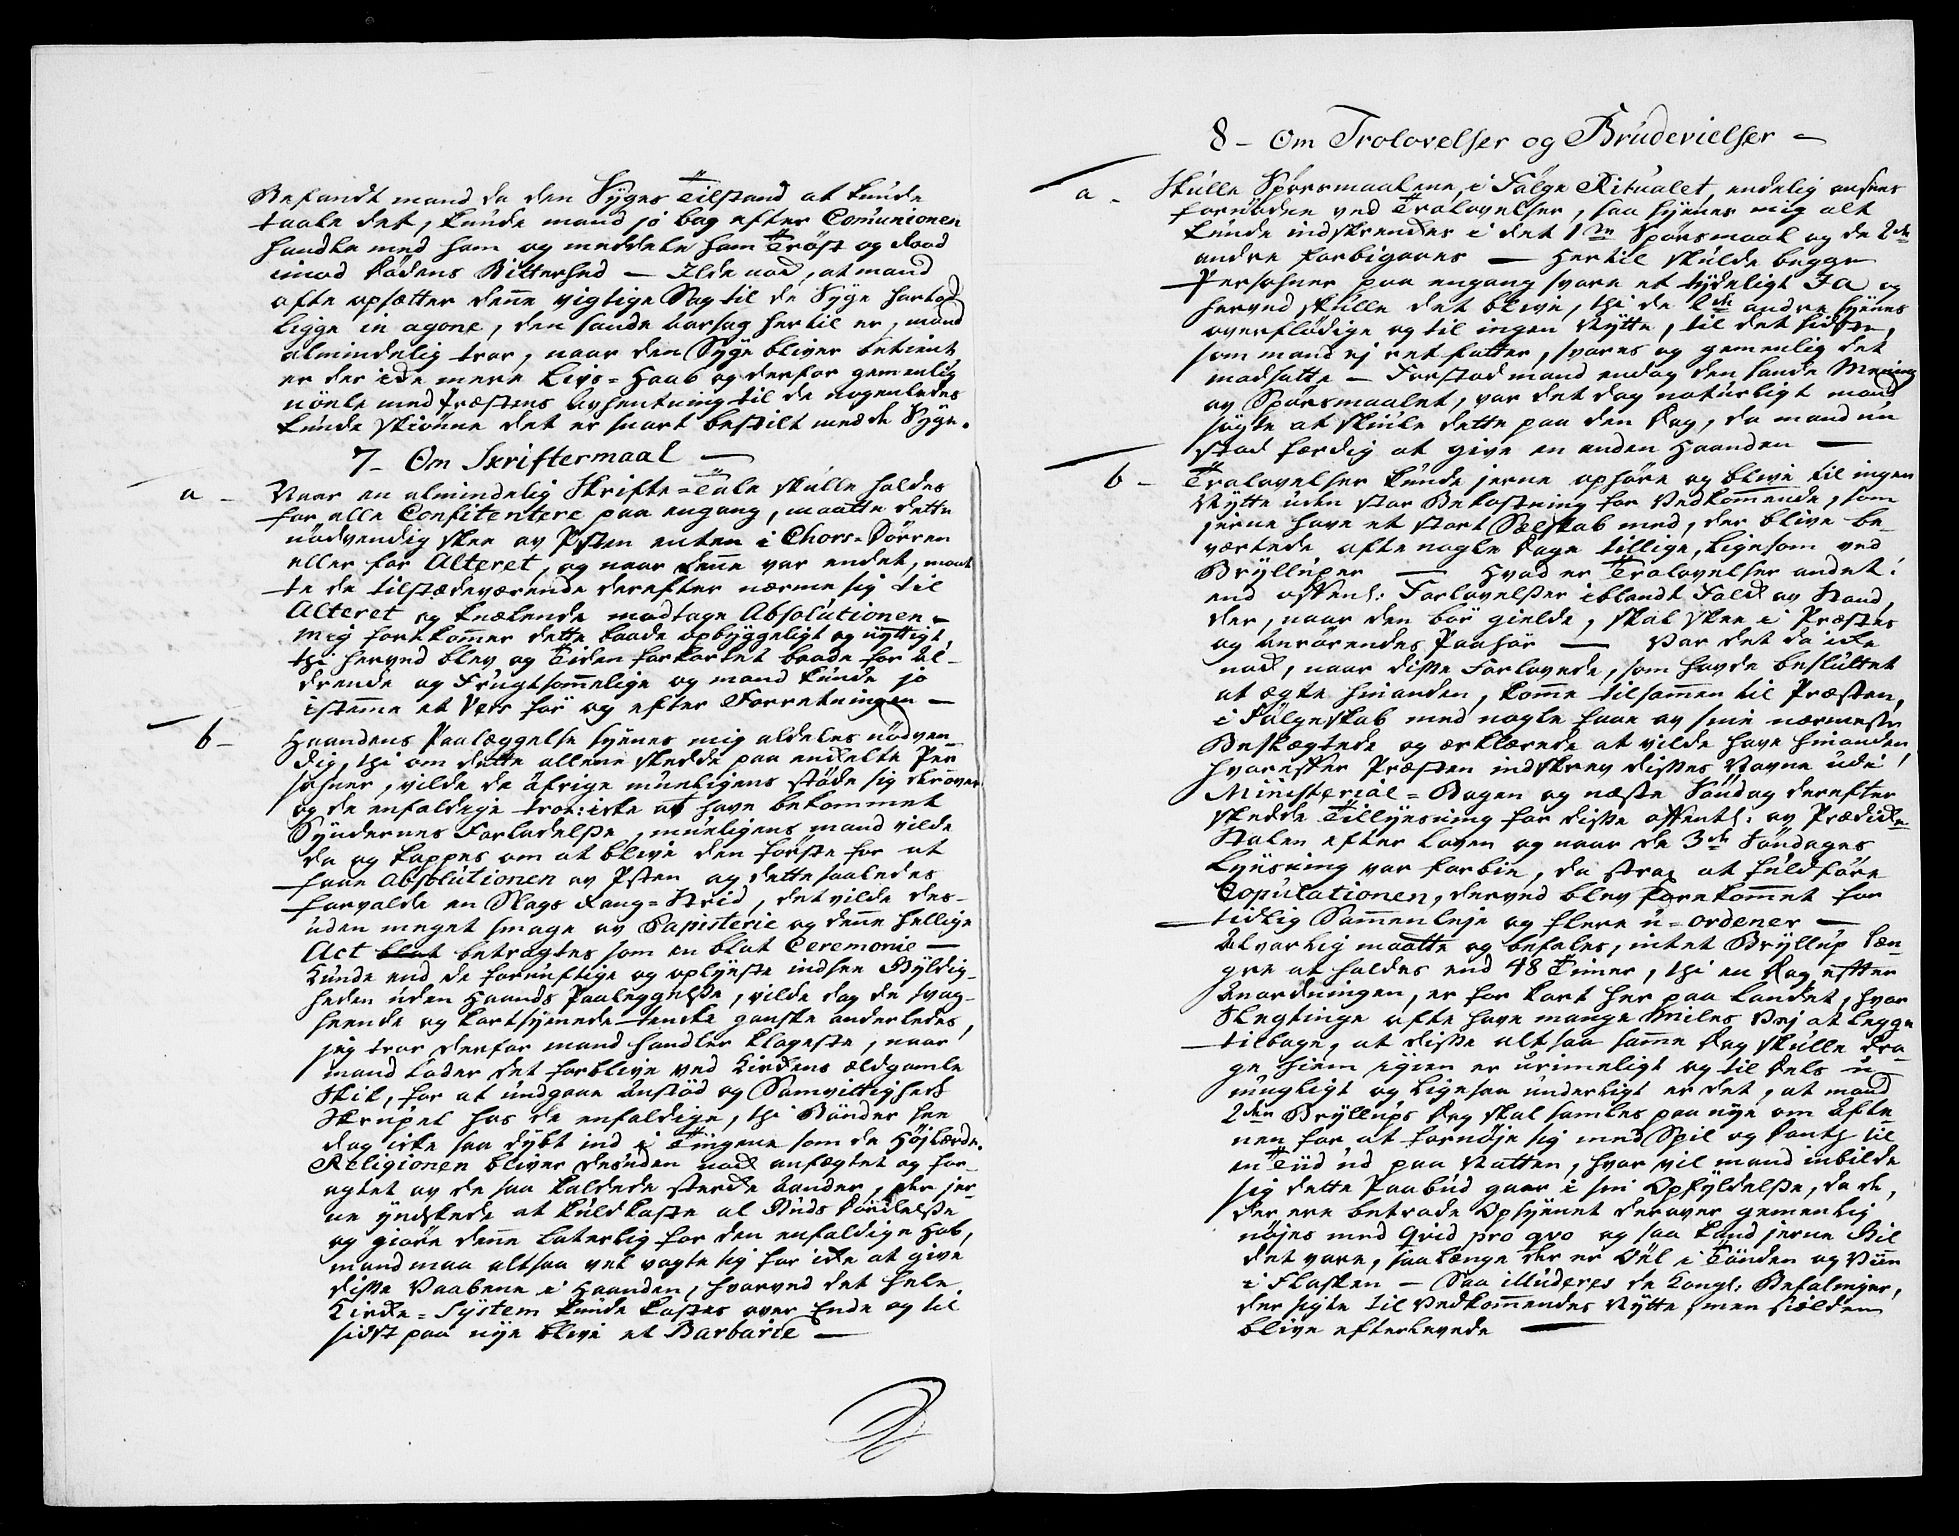 Befandt mand da den Syges Tilstand at kunde
taale det, kunde mand jo bag efter Comunionen
handle med ham og meddele ham Tröst og Raad
imod Dödens Bitterhed — Ilde nok, at mand
ofte opsætter denne vigtige Sag til de Syge
ligge in agone, den sande aarsag hertil er, mand
almindelig troer, naar den Syge bliver betient,
er der icke mere Livs=Haab og derfor gemenlig
nöele med Præstens Avhentning til de nogenledes
kunde skiönne det er snart bestilt med de Syge.
7- Om Skriftermaal —
a - Naar en almindelig Skrifte=Tale skulle holdes
for alle Confitentere paa engang, maatte dette
nödvendig skee av Psten enten i Chors=Dörren
eller for Alteret, og naar denne var endet, maat
te de tilstædeværende derefter nærme sig til
Alteret og knælende modtage Absolutionen -
mig forekommer dette baade opbyggeligt og nyttigt,
thi herved blev og Tiden forkortet baade for Al-
drende og Frugtsommelige og mand kunde jo
istemme et Vers för og efter Forretningen —
b - Haandens Paalæggelse synes mig aldeles nödven-
dig, thi om dette allene skedde paa enkelte Per
sohner, vilde de övrige mueligens stöde sig derover
og de enfoldige troe: icke at have bekommet
Syndernes Forladelse, mueligens mand vilde
da og kappes om at blive den förste for at
faae Absolutionen av Psten og dette saaledes
forvolde en Slags Rang=Strid, det vilde des-
uden meget smage av Papisterie og denne hellige
Act blot betragtes som en blot Ceremonie —
Kunde end de fornuftige og oplyste indsee Gyldig-
heden uden Haands Paaleggelse, vilde dog de svag-
seende og kortsynede tencke ganske anderledes,
jeg troer derfor mand handler klogeste, naar
mand lader det forblive ved Kirkens ældgamle
Skik, for at undgaae Anstöd og Samvittigheds
Skrupel hos de enfoldige, thi Bönder see
dog icke saa dybt ind i Tingene som de Höjlærde.
Religionen bliver desuden nok anfægtet og for-
agtet av de saa kaldede sterke Aander, der jer-
ne ynskede at kuldkaste al Guds Dörkelse
og giöre denne laterlig for den enfoldige Hob,
mand maa altsaa vel vogte sig for icke at give
disse Vaabene i Haanden, hvorved det hele
Kirke=System kunde kastes over Ende og til
sidst paa nye blive et Barbarie —
8 - Om Trolovelser og Brudevielser -
a - Skulle Spörsmaalene, i Fölge Ritualet, endelig ansees
fornödne ved Trolovelser, saa synes mig alt
kunde indskrenckes i det 1te Spörsmaal og de 2de
andre forbigaaes — Hertil skulde begge
Personer paa engang svare et tydeligt Ja og
herved skulle det blive, thi de 2de andre synes
overflödige og til ingen Nytte, til det sidste,
som mand ej ret fatter, svares og gemenlig det
modsatte — Forstod mand endog den sande Mening
av Spörsmaalet, var det dog naturligt mand
sögte at skiule dette paa den Dag, da mand nu
stod færdig at give en anden Haanden —
b - Trolovelser kunde jerne ophöre og blive til ingen
Nytte uden stor Bekostning for Vedkommende, som
jerne have et stort Selskab med, der blive be-
værtede ofte nogle Dage tillige, ligesom ved
Bryllupper — Hvad er Trolovelser andet:
end offentl: Forlovelser iblandt Folk av Stand,
der, naar den bör gielde, skal skee i Præstes
og Anrörendes Paahör — Var det da icke
nok, naar disse Forlovede, som havde besluttet
at ægte hinanden, komme tilsammen til Præsten,
i Fölgeskab med nogle faae av sine nærmeste
Beslægtede og erklærede at vilde have hinanden,
hvorefter Præsten indskrev disses Navne udi
Ministerial=Bogen og næste Söndag derefter
skedde Tillysning for disse offentl: av Prædicke
Stolen efter Loven og naar de 3de Söndages
Lysning var forbie, da strax at fuldföre
Copulationen, derved blev forekommet for
tidlig Sammenleje og flere u=ordener —
Alvorlig maatte og befales, intet Bryllup læn-
gre at holdes end 48 Timer, thi en Dag efter
Anordningen, er for kort her paa Landet, hvor
Slegtinge ofte have mange Miles Vej at legge
tilbage, at disse altsaa samme Dag skulle dra-
ge hiem igien er urimeligt og til Dels u-
muegligt og ligesaa underligt er det, at mand
2den Bryllups Dag skal samles paa nye om Afte-
nen for at fornöje sig med Spil og Dands til
en Tiid ud paa Natten, hvor vil mand inbilde
sig dette Paabud gaaer i sin Opfyldelse, da de,
der ere betroede Opsynet derover gemenlig
nöjes med Qvid pro qvo og saa kand jerne Gil
det vare, saalænge der er Öel i Tönden og Viin
i Flasken — Saa illuderes de Kongl: Befalinger,
der sigte til Vedkommendes Nytte, men sielden
blive efterlevede —